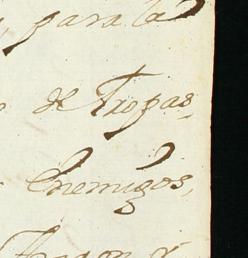 , para la
de Tropas,
Enemigos,
Aragon y